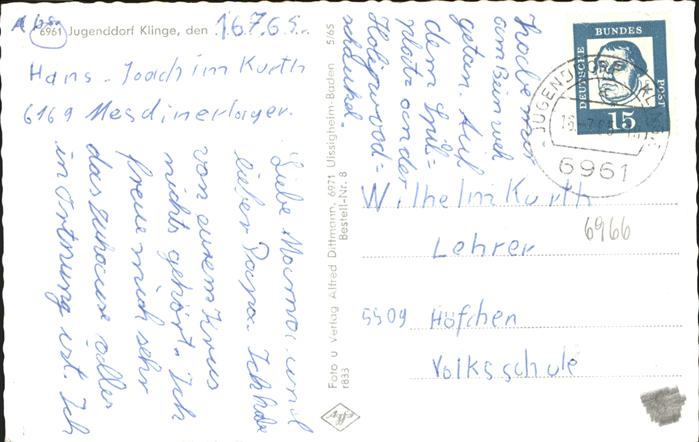 Abs.
6961 Jugenddorf Klinge, den 16.7.65.
Hans-Joachim Kurth
6169 Mesdinerlager.
Liebe Mama und
lieber Papa. Ich habe
von eurem
nichts gehört. Ich
freue mich sehr
das zuhause alles
in Ortnung ist. Ich
habe mir
am Bein weh
getan. Auf
dem Spil-
platz an der
Holywood-
schaukel
5/65
Foto u Verlag Alfred Dittmann, 6971 Uissigheim-Baden
Bestell-Nr. 8
r833
DEUTSCHE BUNDESPOST
15
JUGENDDORF KLINGE
6961
Wilhelm Kurth
6966
Lehrer
5509 Höfchen
Volksschule